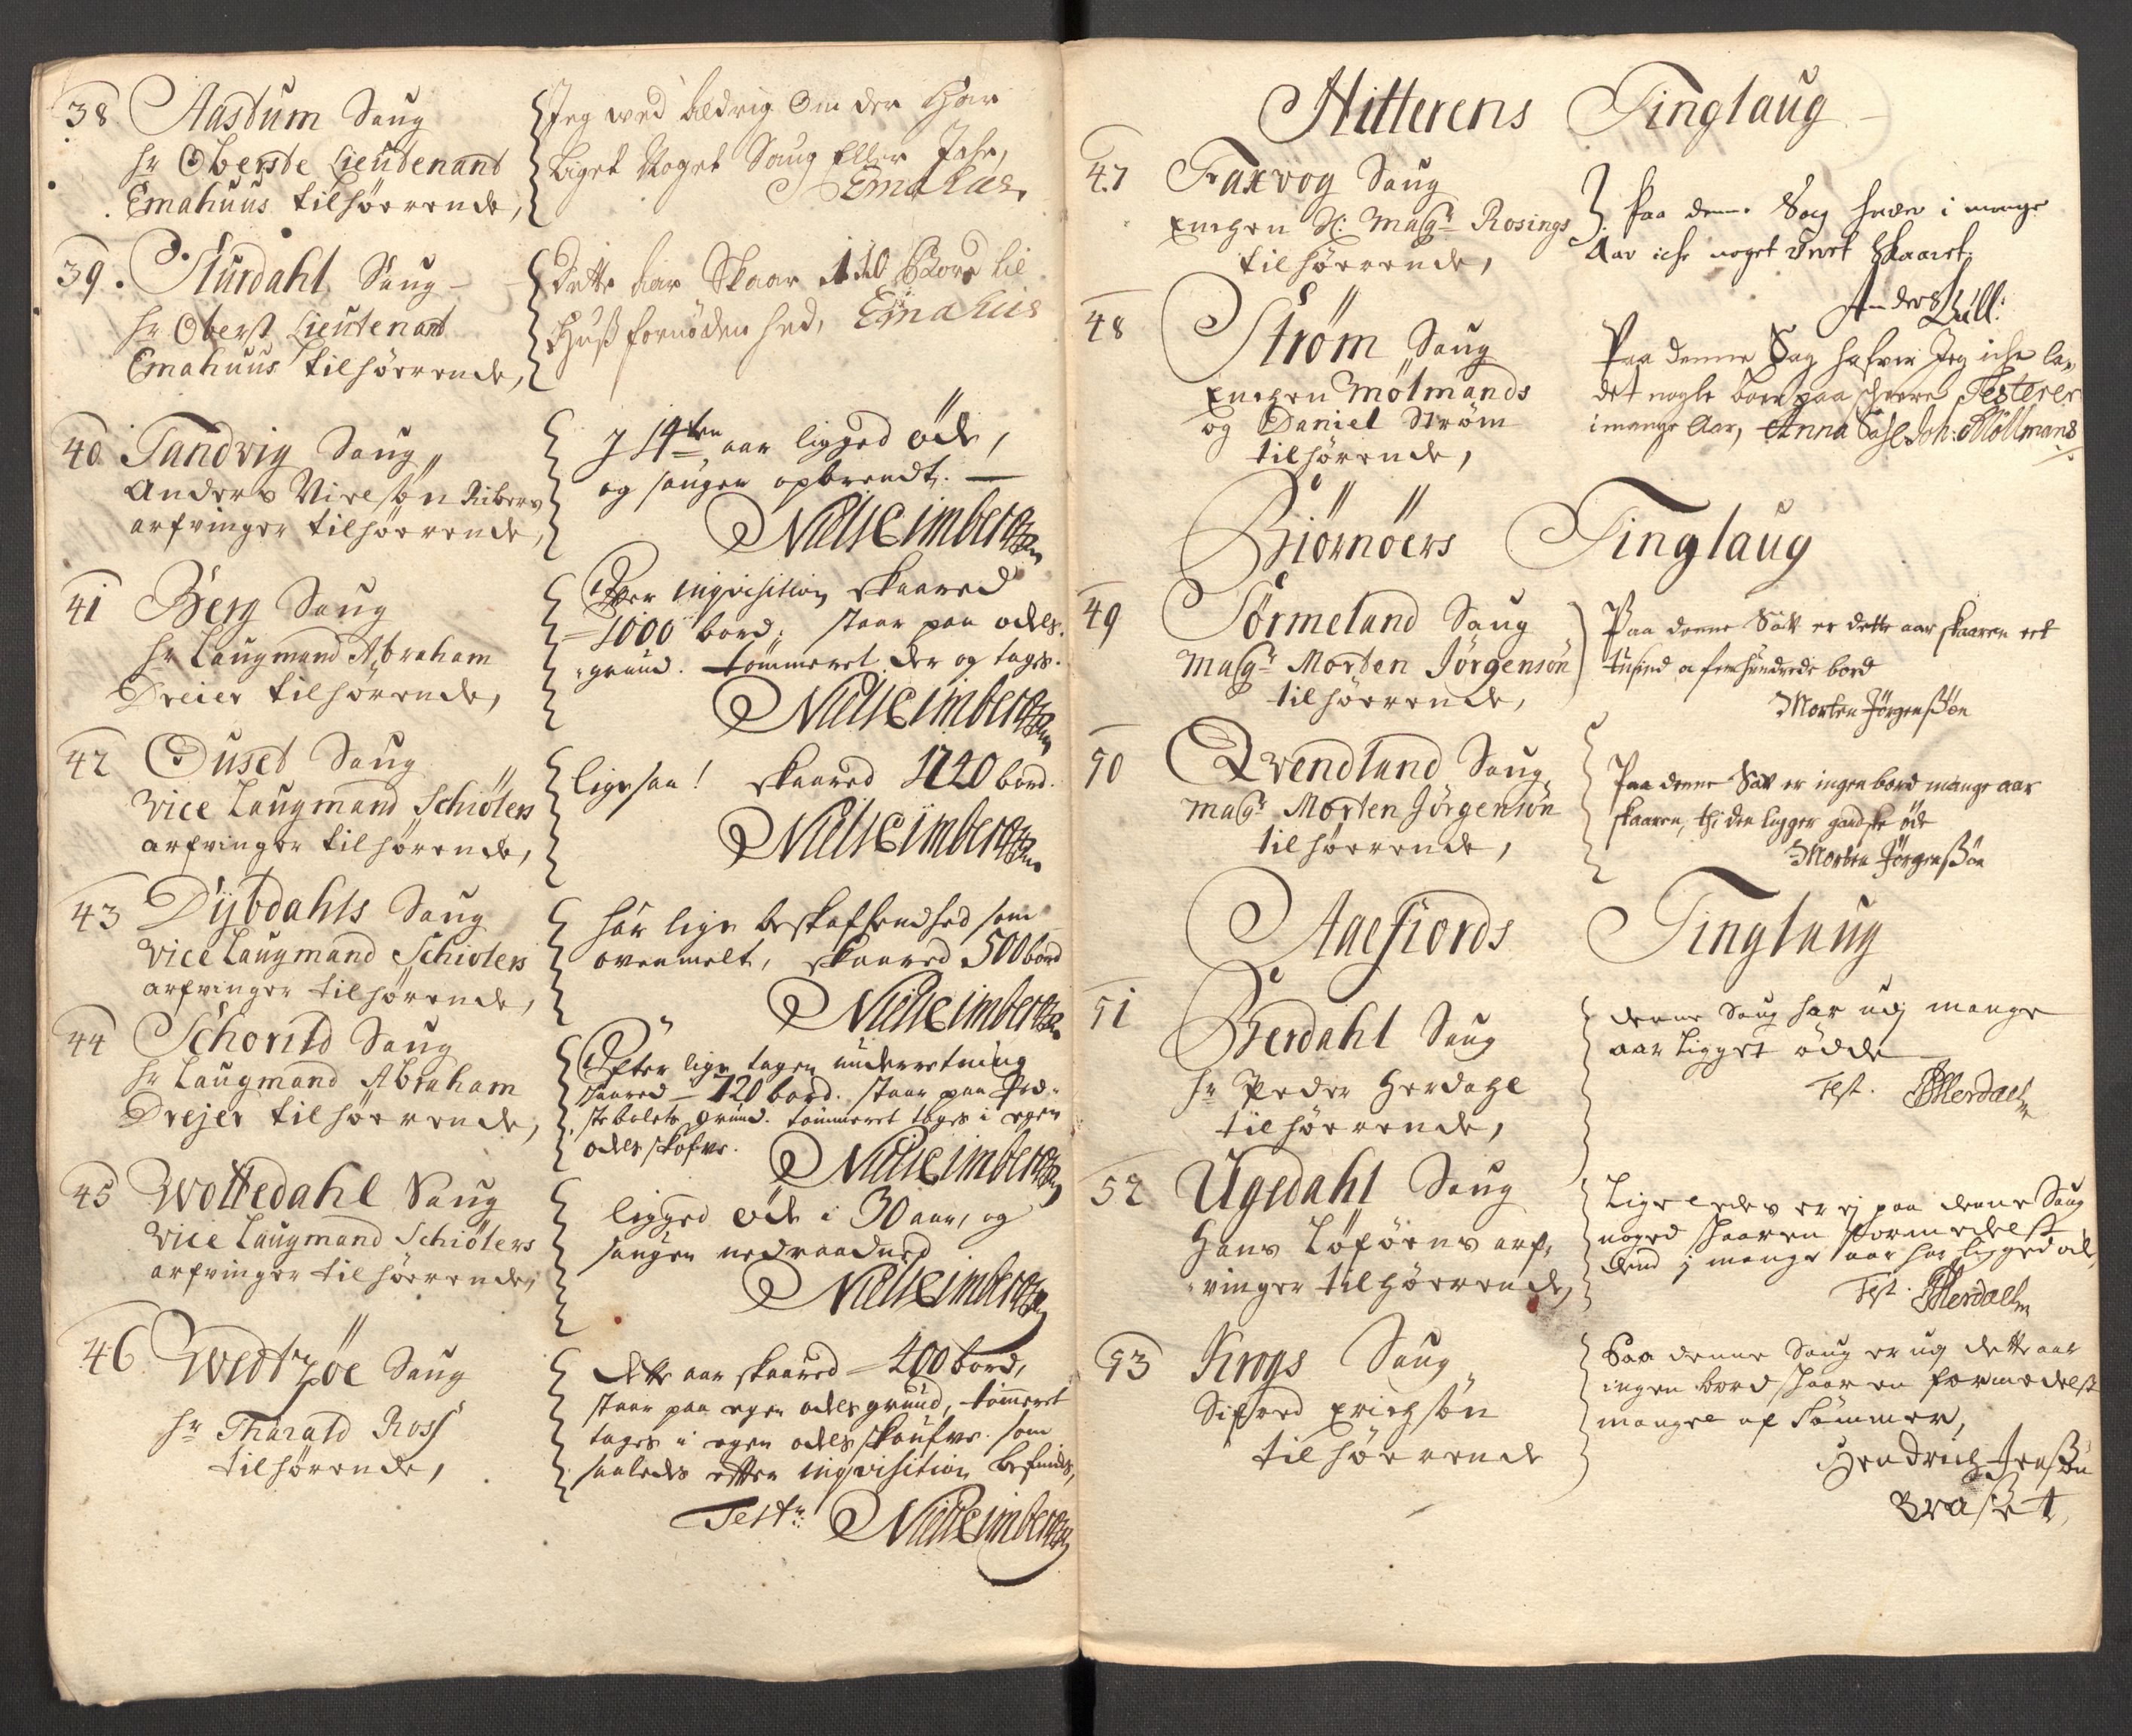 38 Aastum Saug
hr Oberste Lieutenant
Emahuus tilhørende,
Jeg wed aldrig Om der Har
liget Noget Saug Eller Jahr,
Emahus.
39. Sturdahl Saug
hr Oberst Lieutenant
Emahuus tilhørende,
Dette aar Skaar 110 Bord til
Huuß fornödenhed, Emahus
40. Tandvig Saug
Anders Nielsøn Ribers
arfvinger tilhørende,
J 14ten aar ligged öde,
og saugen opbrendt.
41 Berg Saug
hr Laugmand Abraham
Dreier tilhørende,
Efter inqvisition skaared
1000 bord; staar paa odels-
grund. tømmeret der og tages.
42 Ouset Saug
Vice Laugmand Schiöters
arfvinger tilhørende,
ligesaa! skaared 1720 bord.
43 Dÿbdahls Saug
Vice Laugmand Schiöters
arfvinger tilhørende,
har lige beskaffendhed som
ovenmelt, skaared 500 bord
44 Schorild Saug
hr Laugmand Abraham
Drejer tilhørende,
Efter lige tagen underretning
skaared 120 bord. staar paa
grund. tømmeret tages i egen
odels skofve.
45 Wottedahl Saug
Vice Laugmand Schiöters
arfvinger tilhørende,
ligged öde i 30 aar, og
saugen nedraadned
46 Wedtzöe Saug
hr Tharald Ross
tilhørende,
dette aar skaared 400 bord,
staar paa egen odels grund, tømmeret
tages i egen odels skoufve. som
saaledes efter inqvisition befindes,
Test:
Hitterens Tinglaug
47 Faxvog Saug
Enchen Sl: Magr Rosings
tilhørende,
Paa denne Sag haver i mange
Aar iche noget veret Skaaret.
Anders
48 Ström Saug
Enchen Mölmands
og Daniel Strøm
tilhørende,
Paa denne Sag hafver Jeg iche la-
det nogle bord paa schere Testerer
i mange Aar, Anna Sahl Joh: Möllmans
Biörnöers Tinglaug
49 Sörmeland Saug
Magr Morten Jörgensön
tilhørende,
Paa denne Sav er dette aar skaaren eet
tusind a fem hundrede bord
Morten Jörgenßön
50 Qvendland Saug
Magr Morten Jörgensön
tilhørende,
Paa denne Sav er ingen bord mange aar
skaaren, thi den ligger gandske öde
Morten Jörgenßön
Aaefiords Tinglaug
51 Herdahl Saug
hr Peder Herdahl
tilhørende,
denne Saug har udj mange
aar ligget ødde
Test. PHerdaell
52 Ugedahl Saug
Hans Löförens arf-
vinger tilhørende,
Ligeledes er ej paa denne Saug
noged skaaren formedelst
dend j mange aar har ligged öde,
Test. PHerdaell
53 Krogs Saug
Sifved Erichsön
tilhørende
Paa denne Saug er udj dette aar
ingen bord skaaren formedelst
mangel af tømmer,
Hendrich Jenßön
Braset